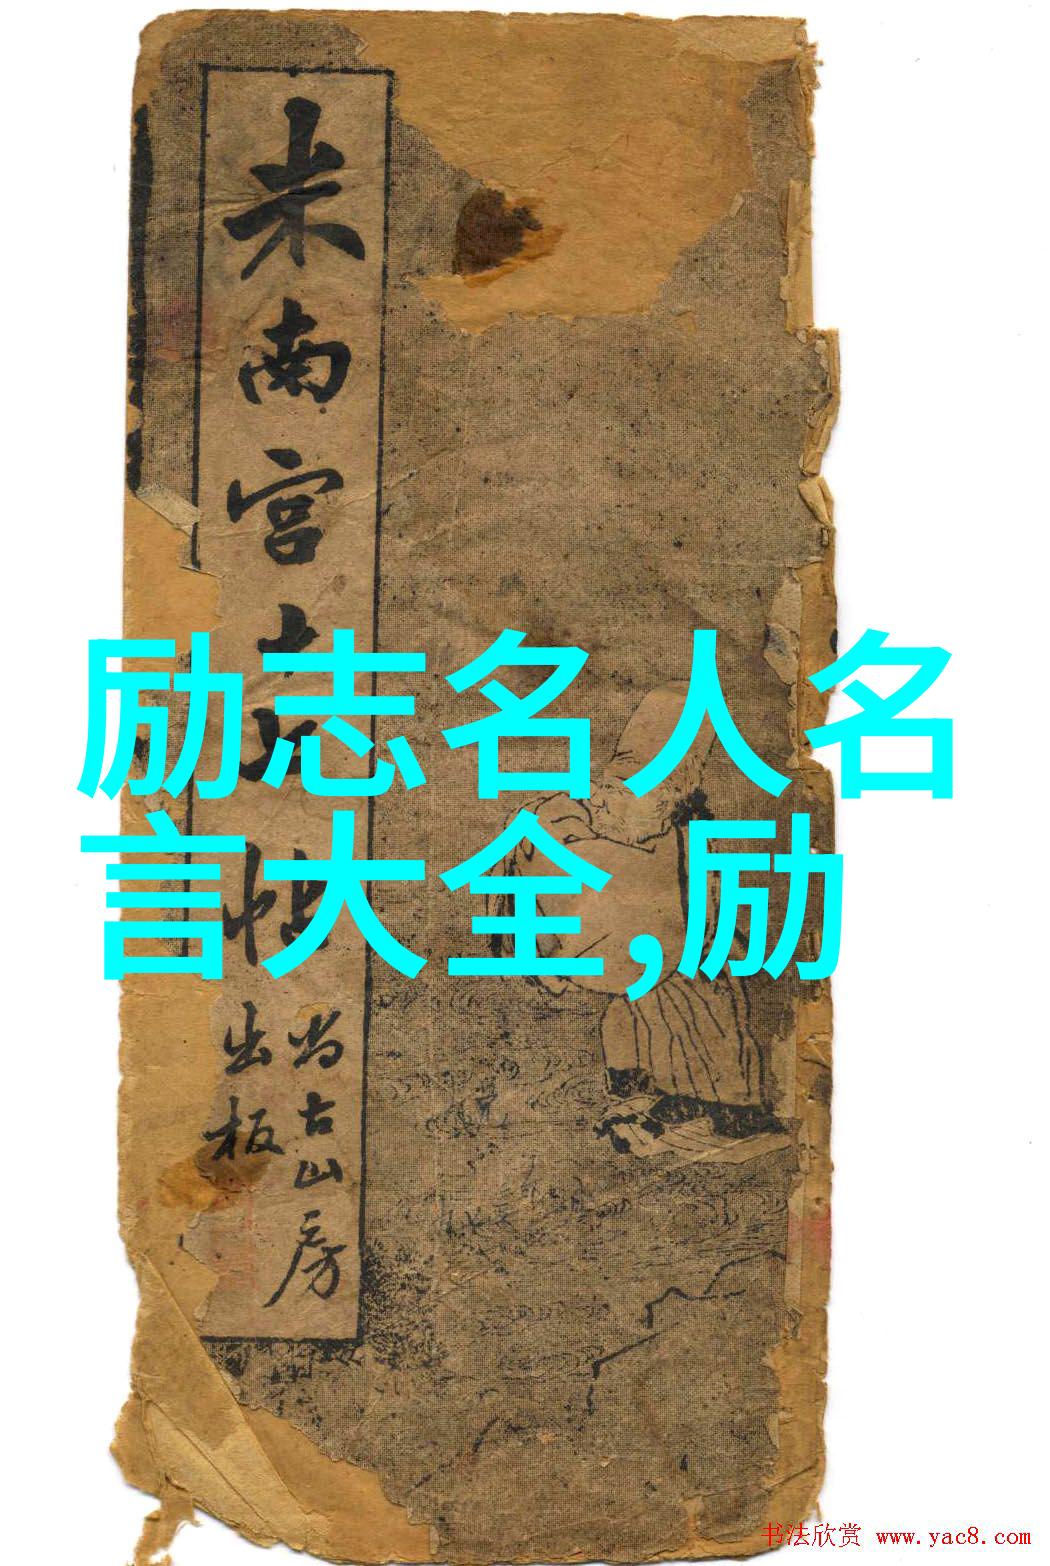 米南宫
帖
尚古山房
出板
励志名人名
言大全,励
书法欣赏 www.yac8.com